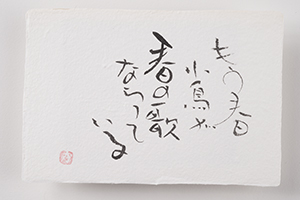 もう春
小鳥が
春の歌
ならって
いる